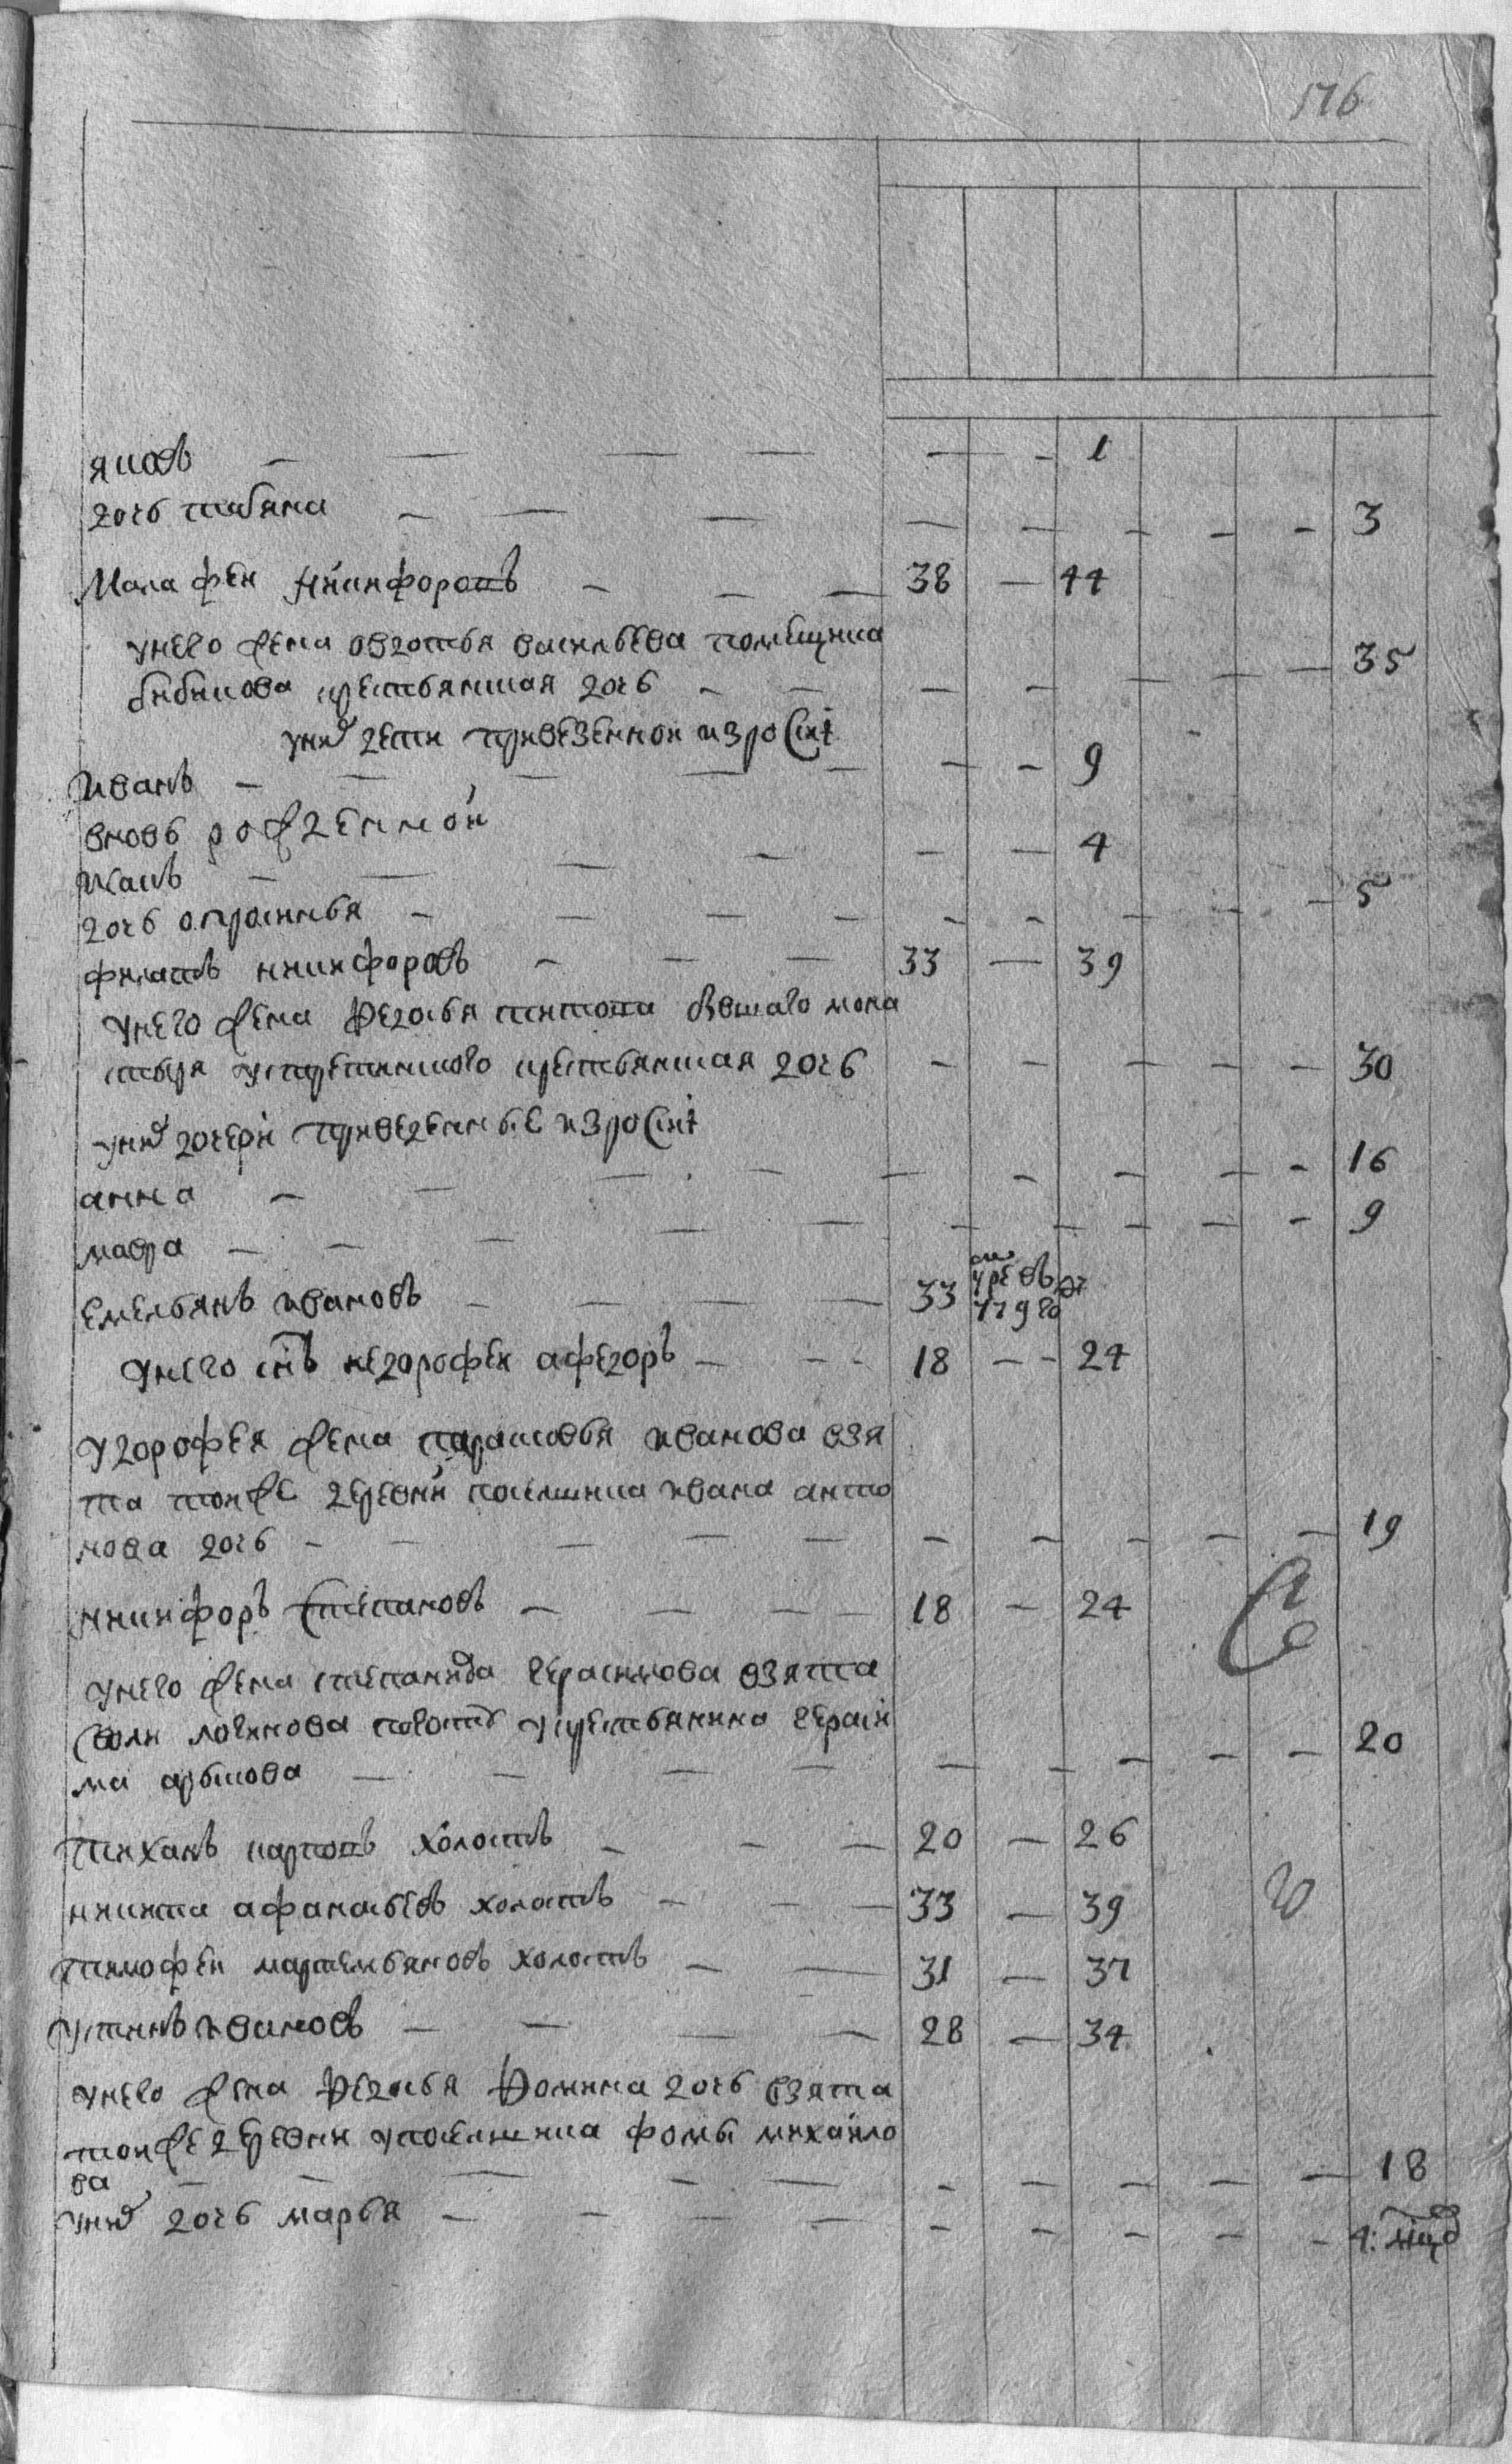 176
яковъ — — — — — - 1
дочь татьяна — — — — — — — - 3
Малафеи никифоровъ — — — 38 — 44
унего жена овдотья васильева помещика
бибикова крестьянская дочь — — — — — — — 35
унихъ дети привезеннои изросиі
Иванъ — — — — — — - 9
вновь рожденнои
Исакъ — — — — — — 4
дочь опросинья — — — — — — — — - 5
филатъ никифоровъ — — — 33 — 39
унего жена Федосья титова бывшаго мона
стыря устретинского крестьянская дочь — — — — - 30
унихъ дочери привезенные изросиі
анна — — — — — — — — - 16
мавра — — — — — — — — — - 9
емельянъ ивановъ — — — 33 1779 го
унего снъ недорофеи афедоръ — - - 18 — - 24
удорофея жена парасковья иванова взя
та тоиже деревни поселшика ивана анто
нова дочь — — — — — — — — — — 19
никифоръ степановъ — — — — 18 — 24
унего жена степанида герасимова взята
логинова крестьянина гераси
ма — — — — — — — — — 20
тиханъ карповъ холостъ — — — 20 — 26
никита афанасьевъ холостъ — — — 33 — 39
тимофеи мартемьяновъ холостъ — — 31 — 37
устинъ ивановъ — — — — 28 — 34
унего жена Федосья Фомина дочь взята
тоиже деревни упоселшика фомы михаило
ва — — — — — — — — — — 18
унихъ дочь марья — — — — — — — — - 4: мцо